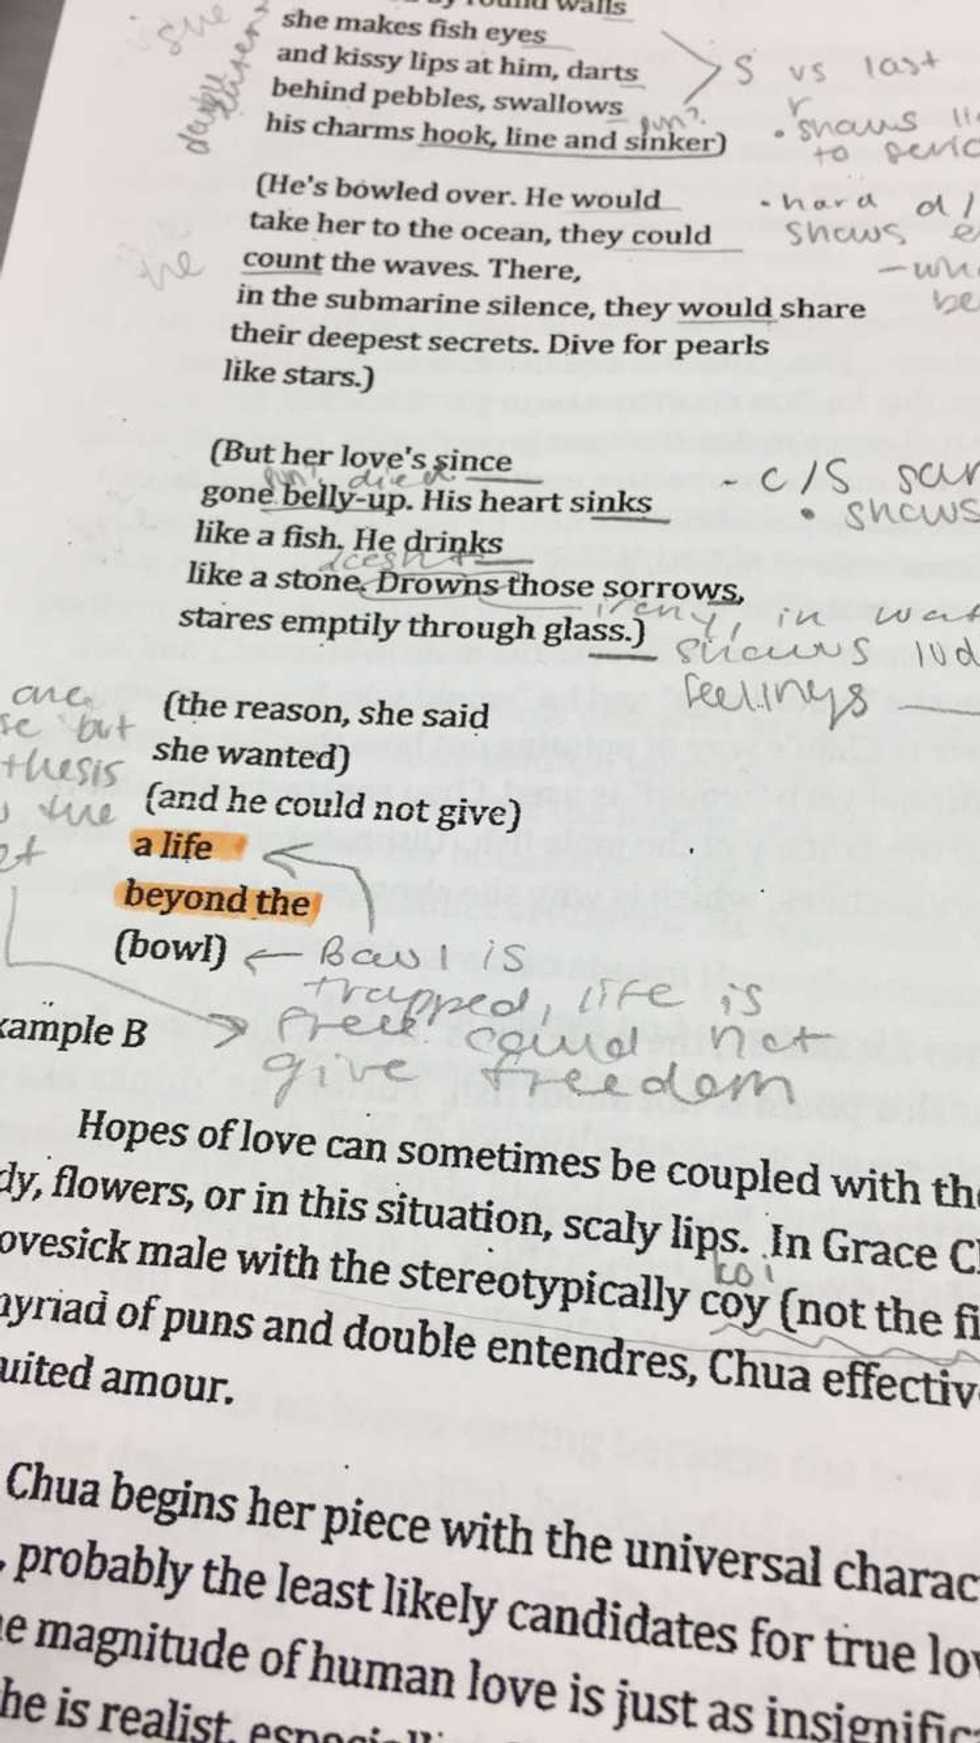 walls
she
she makes fish eyes
and kissy lips at him, darts
behind pebbles, swallows
pun?
his charms hook, line and sinker)
S vs last
shows
to
(He's bowled over. He would
take her to the ocean, they could
count the waves. There,
in the submarine silence, they would share
their deepest secrets. Dive for pearls
like stars.)
he
hard d/
shows
(But her love's since
pun? died
gone belly-up. His heart sinks
like a fish. He drinks
doesn't
like a stone. Drowns those sorrows,
stares emptily through glass.)
- c/s
shows
irony, in
shows
feelings
(the reason, she said
she wanted)
(and he could not give)
a life
beyond the
(bowl)
one
but
thesis
the
Bowl is
trapped, life is
free. could not
give freedom
xample B
Hopes of love can sometimes be coupled with th
dy, flowers, or in this situation, scaly lips. In Grace C
ovesick male with the stereotypically coy (not the fi
koi
nyriad of puns and double entendres, Chua effectiv
uited amour.
Chua begins her piece with the universal charac
, probably the least likely candidates for true lov
e magnitude of human love is just as insignific
he is realist,